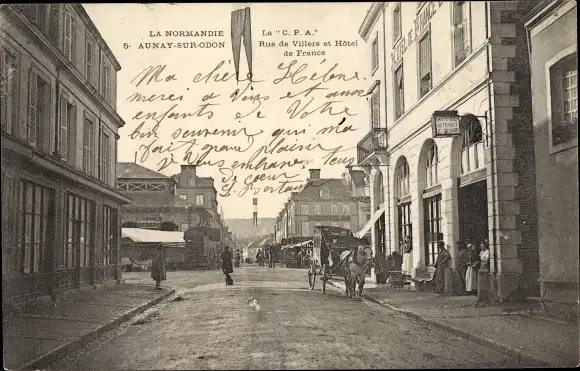 LA NORMANDIE
5- AUNAY-SUR-ODON
La "C. P. A."
Rue de Villers et Hôtel
de France
Ma chère Hélène
merci a Vous et aux
enfants de Votre
bon souvenir qui m'a
fait grand plaisir
je vous embrasse tous
de cœur
HÔTEL DE FRANCE